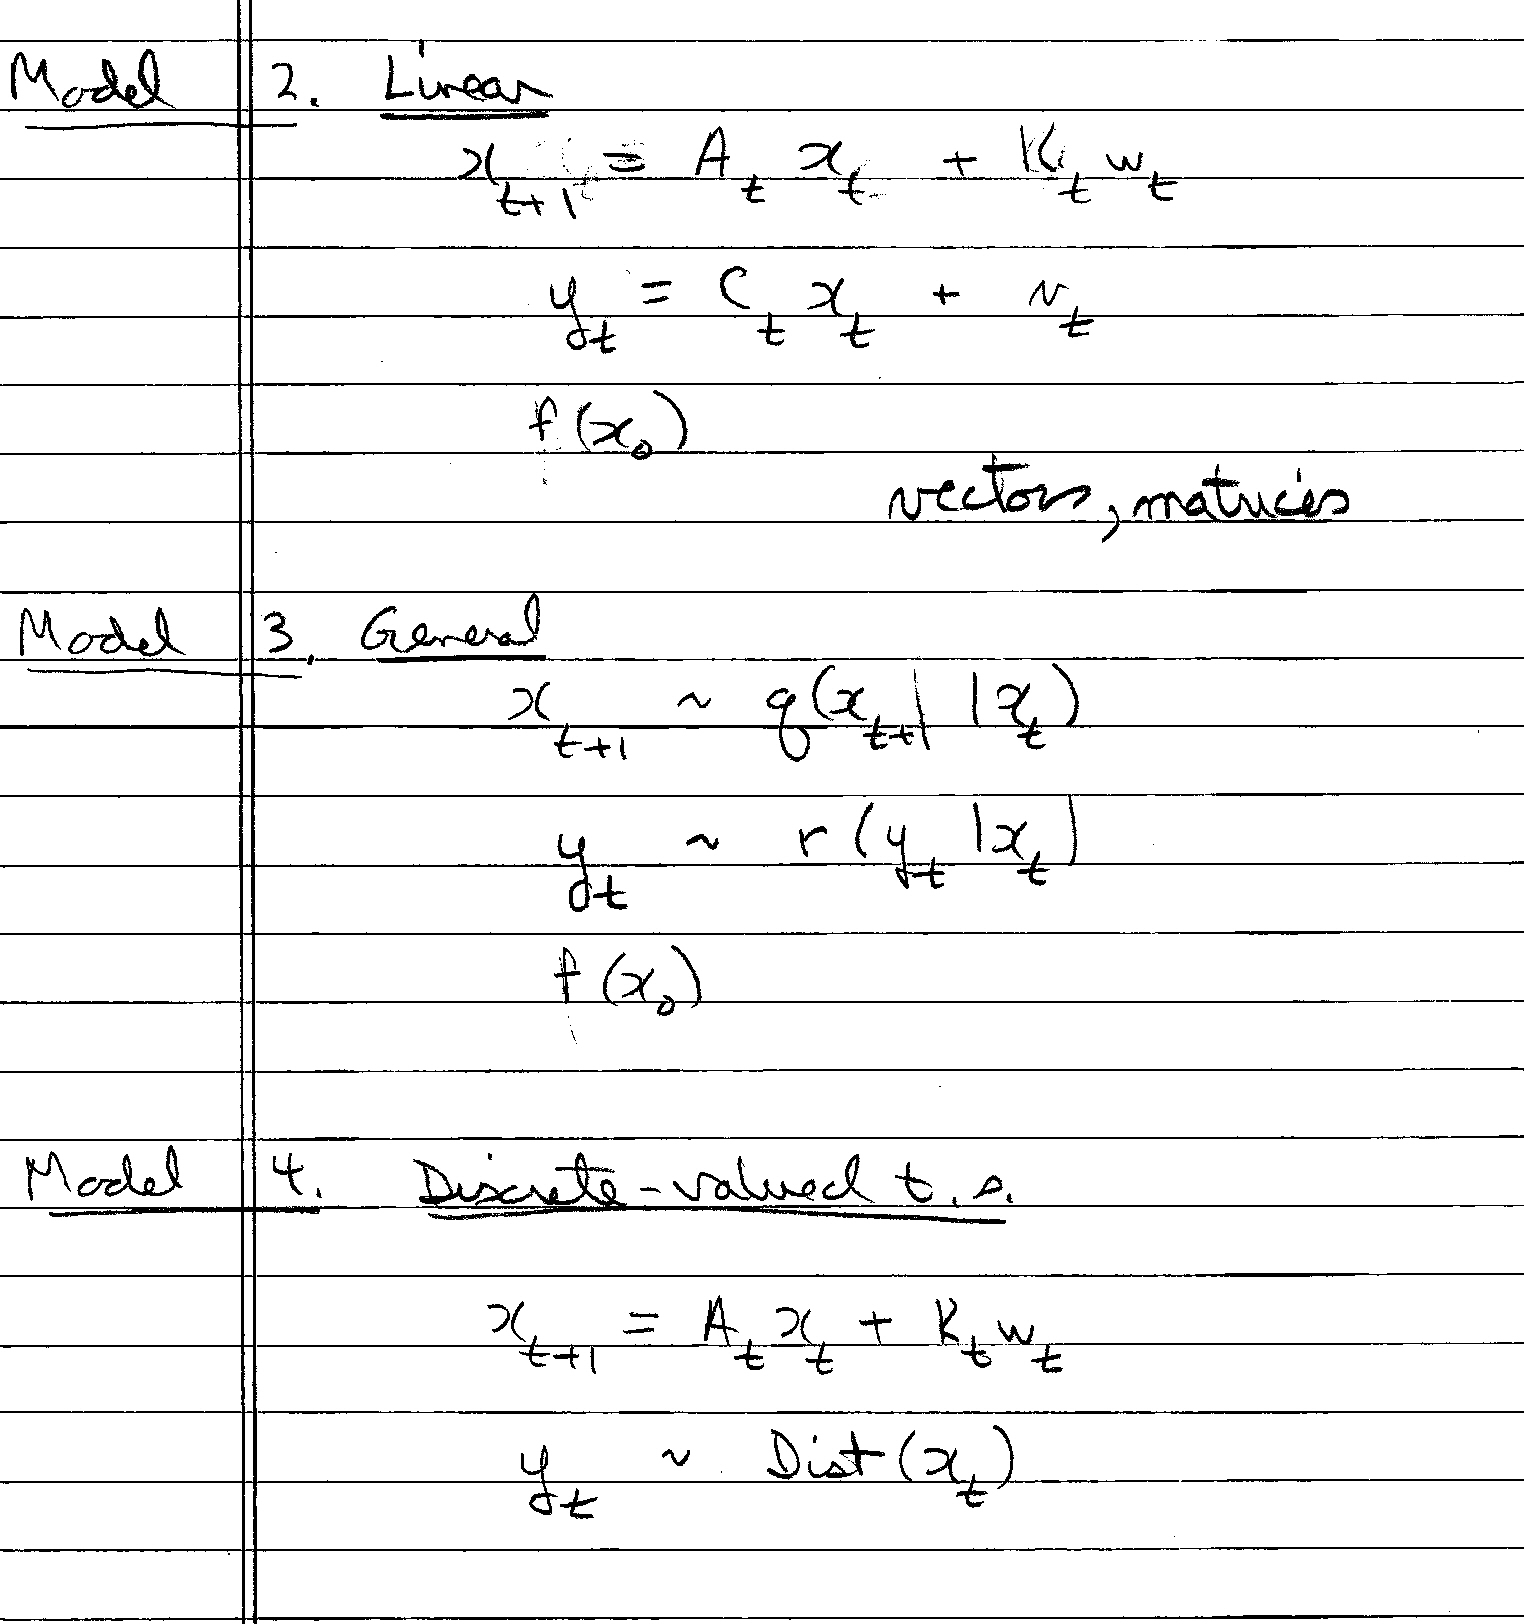 Model 2. Linear
x_{t+1} = A_t x_t + K_t w_t
y_t = C_t x_t + v_t
f(x_0)
vectors, matrices
Model 3. General
x_{t+1} ~ q(x_{t+1} | x_t)
y_t ~ r(y_t | x_t)
f(x_0)
Model 4. Discrete-valued t.s.
x_{t+1} = A_t x_t + K_t w_t
y_t ~ Dist(x_t)